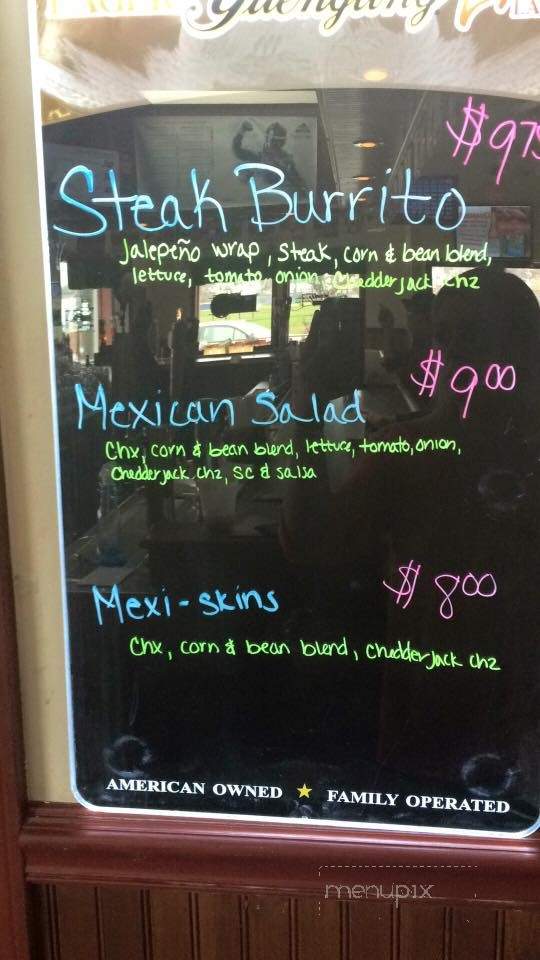 Yuengling
$975
Steak Burrito
Jalepeño wrap, Steak, corn & bean blend,
lettuce, tomato, onion, chedderjack chz
$900
Mexican Salad
Chx, corn & bean blend, lettuce, tomato, onion,
Chedderjack chz, SC & salsa
$800
Mexi-skins
Chx, corn & bean blend, chedderjack chz
AMERICAN OWNED ★ FAMILY OPERATED
menupix